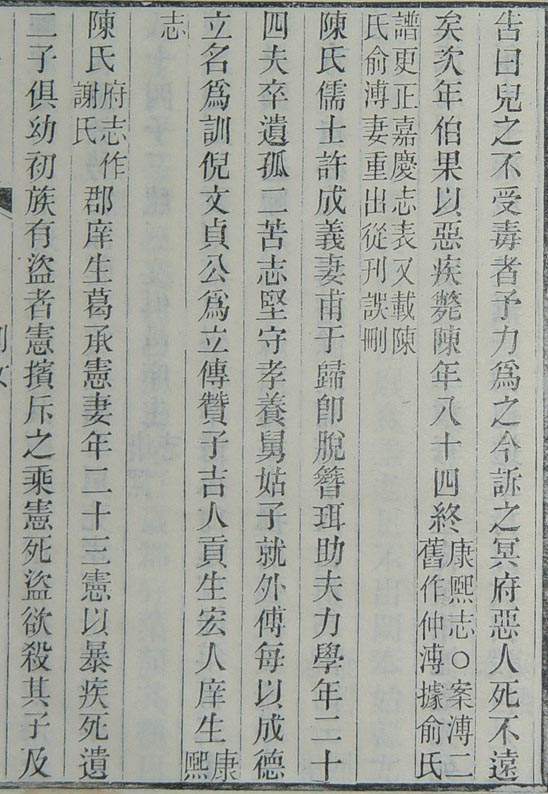 告曰兒之不受毒者予力爲之今訴之冥府惡人死不遠
矣次年伯果以惡疾斃陳年八十四終康熙志○案溥二舊作仲溥據俞氏
譜更正嘉慶志表又載陳氏俞溥妻重出從刊誤刪
陳氏儒士許成義妻甫于歸卽脫簪珥助夫力學年二十
四夫卒遺孤二苦志堅守孝養舅姑子就外傅每以成德
立名爲訓倪文貞公爲立傳贊子吉人貢生宏人庠生康熙
志
陳氏府志作謝氏郡庠生葛承憲妻年二十三憲以暴疾死遺
二子俱幼初族有盜者憲擯斥之乘憲死盜欲殺其子及